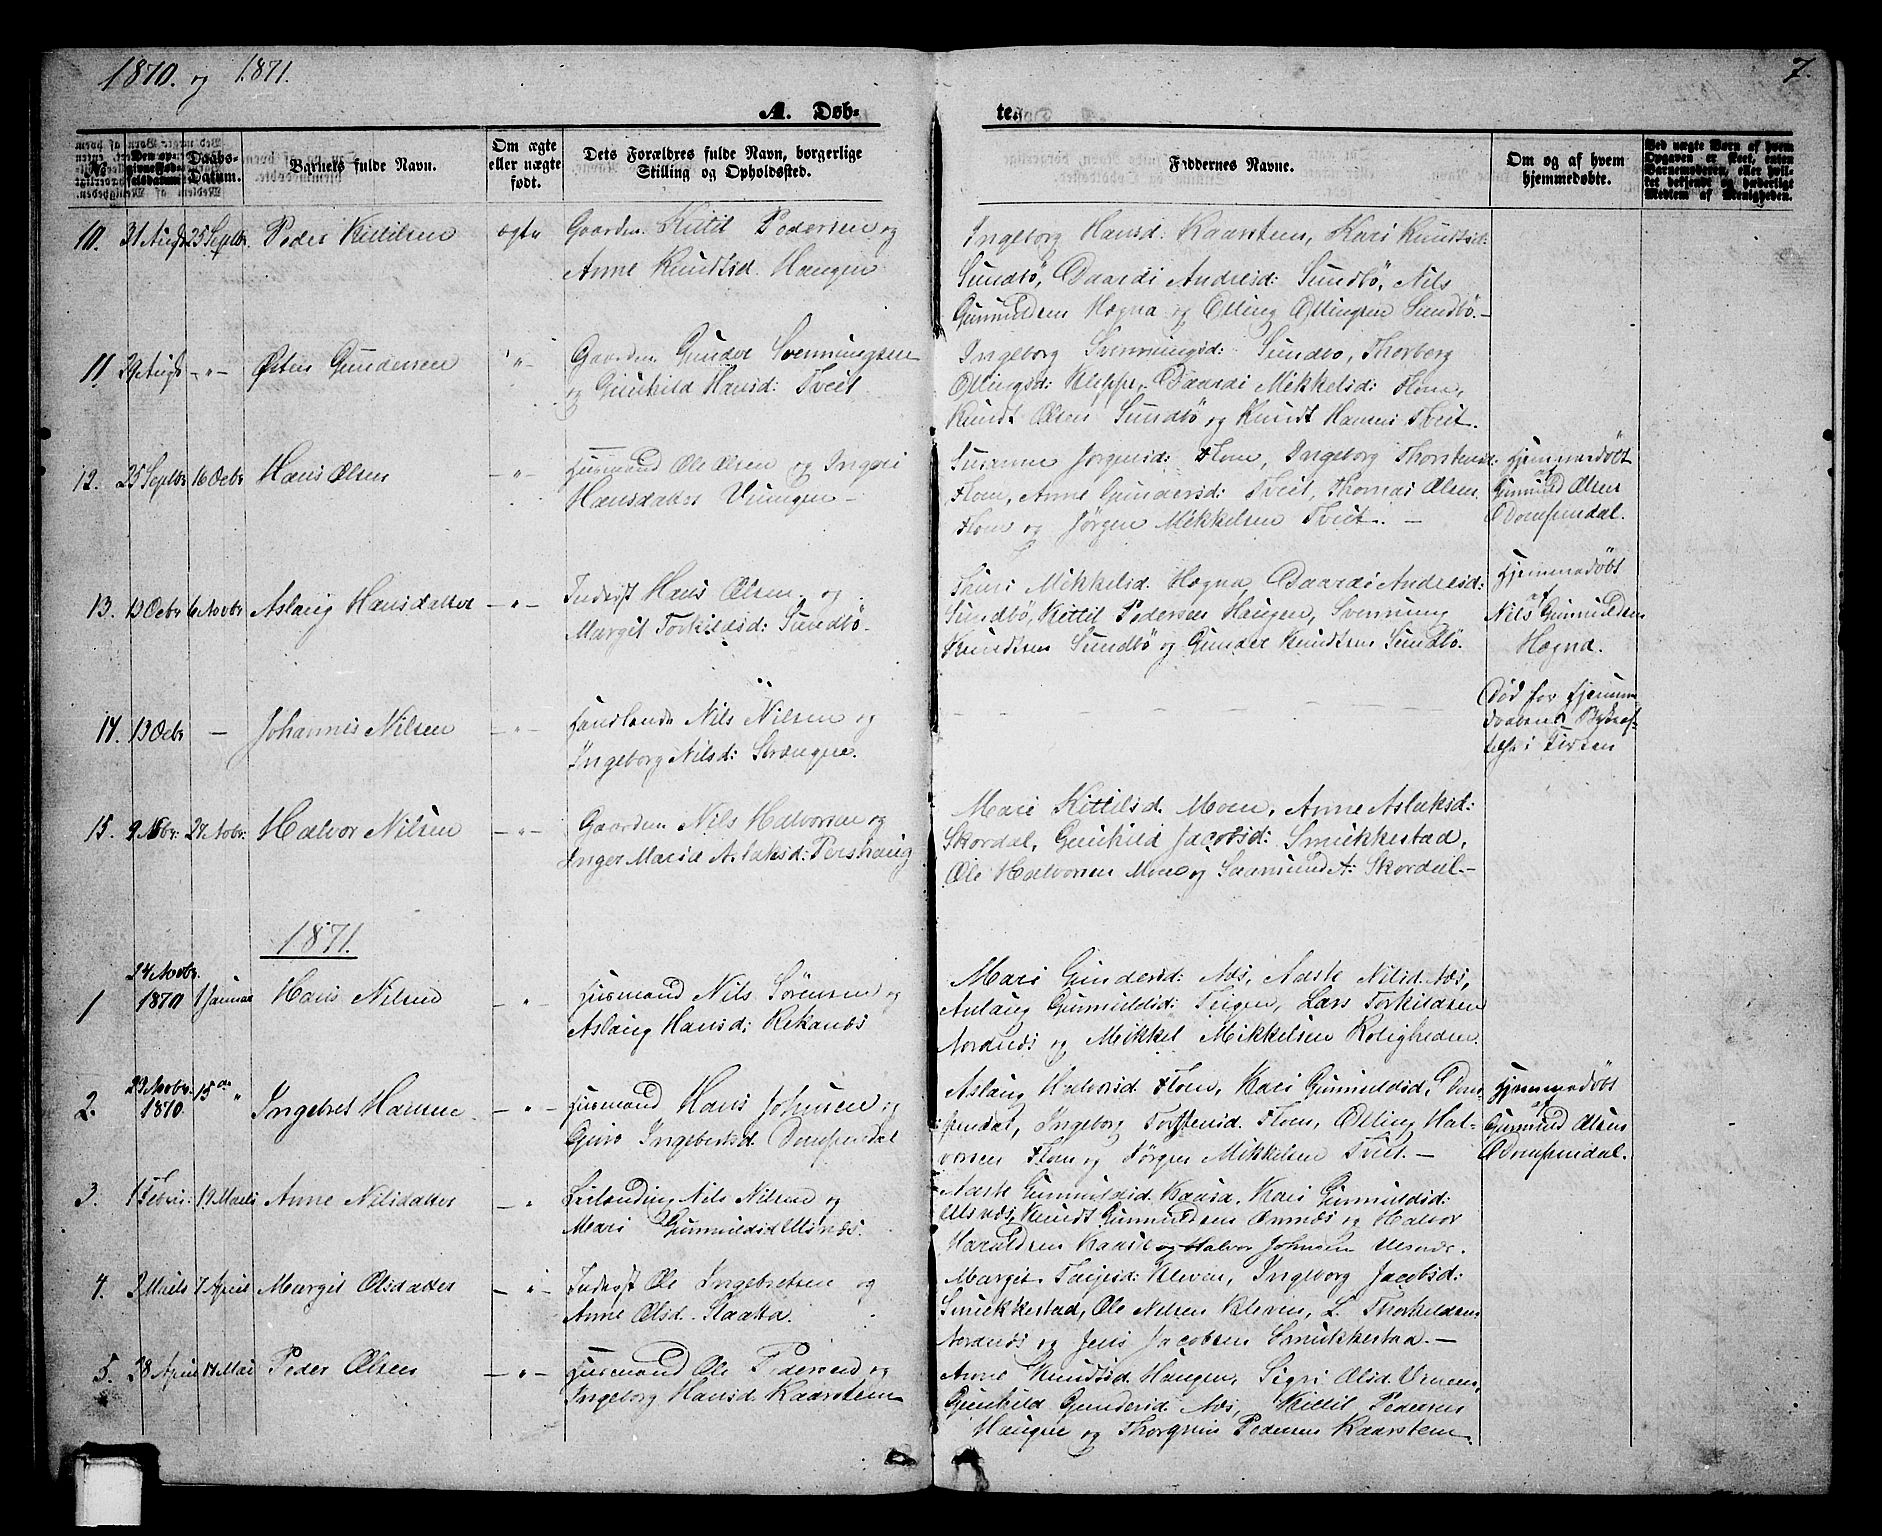 1870. og 1871.
7.
A. Døb-
te.
No.
Daabs-
Datum.
Barnets fulde Navn.
Om ægte
eller uægte
født.
Dets Forældres fulde Navn, borgerlige
Stilling og Opholdssted.
Faddernes Navne.
Om og af hvem
hjemmedøbt.
Ved uægte Børn af hvem
Opgaven er skeet, enten
Barnemoderen, eller hvil-
ket bekjendt og hæderligt
Medlem af Menigheden.
10. 31 Augst 25 Septbr. Peder Kittilsen ægte Gaardm. Kittil Pedersen og
Anne Knudtsd. Haugen
Ingeborg Hansd: Kaarstein, Kari Knudtsd:
Sundbö, Daardi Andresd: Sundbö, Nils
Gunnuldsen Høgna og Olling Ollingsen Sundbö.-
11. 29 Augst -"- Østen Gundersen " Gaardm. Gunder Svenningsen
og Gunhild Hansd: Tveit
Ingeborg Svenningsd: Sundbö, Thorborg
Ollingsd: Kleppe, Daardi Mikkelsd: Flom,
Knudt Olsen Sundbö og Knudt Hansen Tveit.
12. 25 Septbr 16 Octbr Hans Olsen -"- Husmand Ole Olsen og Ingeri
Hansdatter Vringen -
Susanne Jørgensd: Flom, Ingeborg Thorstensd:
Flom, Anne Gundersd: Tveit, Thomas Olsen
Flom og Jørgen Mikkelsen Tveit. -
Hjemmedöbt
af
Gunnuld Olsen
Dompendal.
13. 13 Octbr 6 Novbr Aslaug Hansdatter -"- Inderst Hans Olsen og
Margit Torkildsd: Sundbö.
Mikkelsd. Høgna, Daardi Andresd:
Sundbö, Kittil Pedersen Haugen, Svenning
Knudtsen Sundbö og Gunder Knudtsen Sundbö.
Hjemmedöbt
af
Nils Gunnuldsen
Høgna.
14. 13 Octbr - Johannes Nilsen -"- Nils Nilsen og
Ingeborg Nilsd: Strængen.
- - - - - - -
Död før Hjemme
daabens
15. 2 Nobr. 27 Nobr. Halvor Nilsen -"- Gaardm Nils Halvorsen og
Inger Marie Aslaksd: Pershaug
Mari Kittilsd. Moen, Anne Aslaksd:
Skordal, Gunhild Jacobsd: Smukkestad,
Ole Halvorsen Moen og Saamund A: Skordal.-
1871.
1 24 Novbr.
1870 1 Januar Hans Nilsen " Husmand Nils Sörensen og
Aslaug Hansd: Rekanæs
Mari Gundersd: Næs, Aaste Nilsd. Næs,
Aslaug Gunnuldsd: Teigen, Lars Torkildsen
Nordnæs og Mikkel Mikkelsen Roligheden
2. 23 Novbr.
1870. 15de " Ingebret Hansen -"- Husmand Hans Johnsen og
Guro Ingebretsd. Dompendal
Aslaug Halvorsd. Flom, Kari Gunnuldsd, Dom-
pendal, Ingeborg Torstensd. Flom, Olling Hal-
vorsen Flom og Jørgen Mikkelsen Tveit. -
Hjemmedöbt
af
Gunnuld Olsen
Dompendal.
3. 1 Febr: 19 Marts Anne Nilsdatter " Nils Nilsen og
Mari Gunnuldsd Ulsnæs.
Aaste Gunnuldsd. Kaasa. Kari Gunnuldsd:
Ulsnæs, Knudt Gunnuldsen og Halvor
Haraldsen Kaasa og Halvor Johnsen Ulsnæs.
4. 2 Marts 7 April Margit Olsdatter -"- Inderst Ole Ingebretsen og
Anne Olsd. Slaatta.
Margit Taljesd: Kleven, Ingeborg Jacobsd:
Smukkestad, Ole Nilsen Kleven, L. Thorkildsen
Nordnæs og Jens Jacobsen Smukkestad. -
5. 28 April 14 Mai Peder Olsen -"- Husmand Ole Pedersen og
Ingeborg Hansd. Kaarstein
Anne Knudsd: Haugen, Sigri Olsd.
Gunhild Gundersd. Næs, Kittil Pedersen
Haugen og Thorgrim Pedersen Kaarstein.